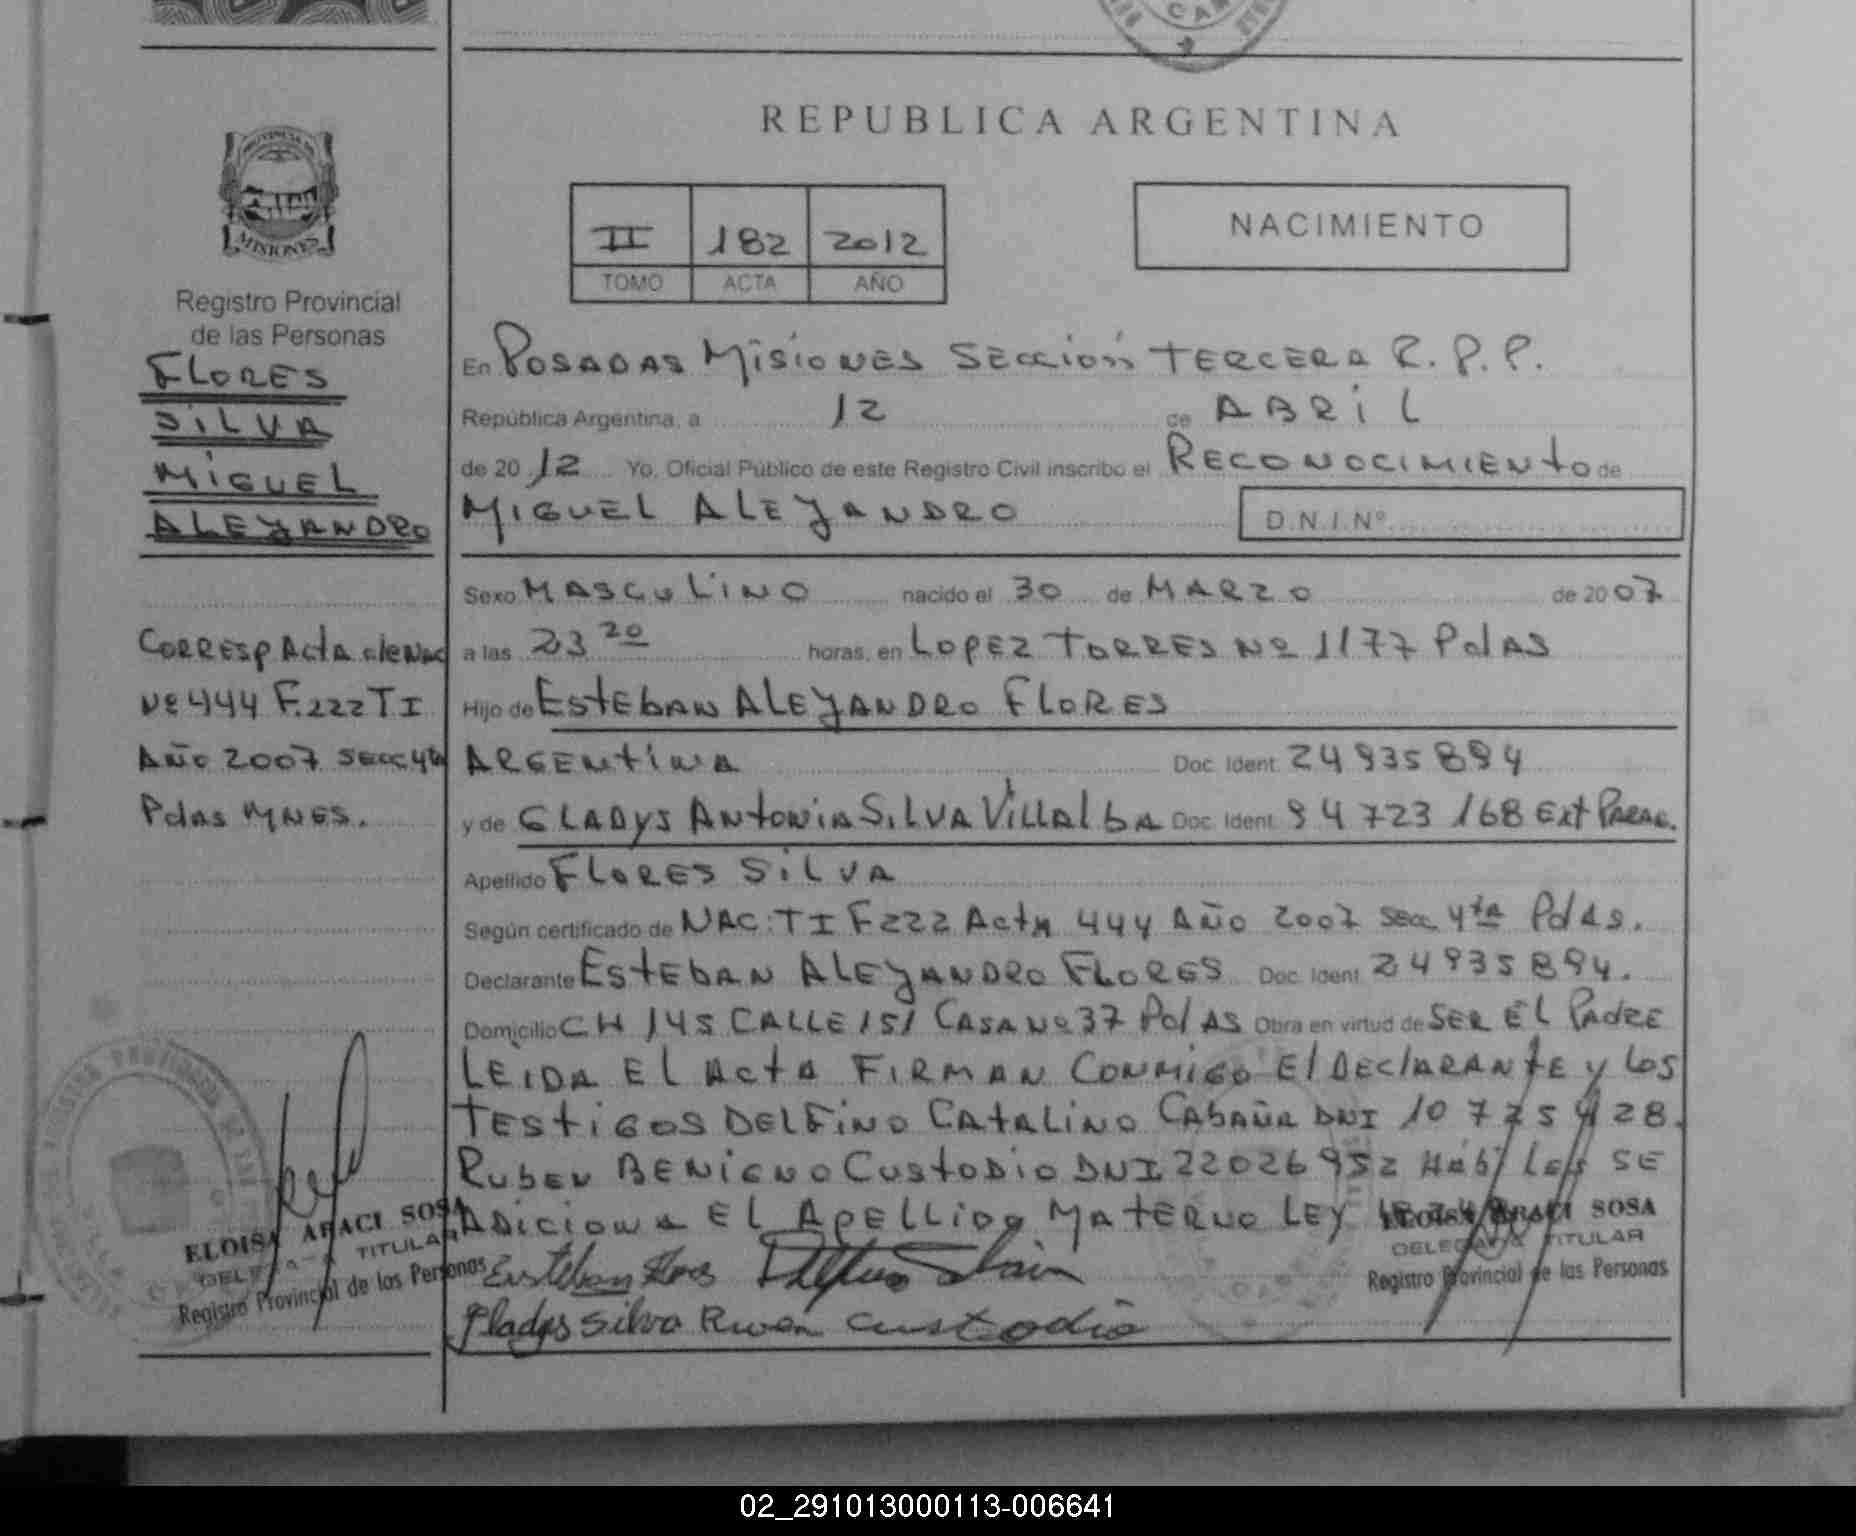 REPUBLICA ARGENTINA
PROVINCIA DE
MISIONES
Registro Provincial
de las Personas
FLORES
SILVA
MIGUEL
ALEJANDRO
CORRESP ActA de NAC
Nº 444 F. 222 T I
Año 2007 SECC 4ta
Pdas MNES.
II 182 2012
TOMO ACTA AÑO
NACIMIENTO
En POSADAS MISIONES SECCIÓN TERCERA R. P. P.
República Argentina, a 12 de ABRIL
de 20 12 Yo, Oficial Público de este Registro Civil inscribo el RECONOCIMIENTO de
MIGUEL ALEJANDRO D.N.I. Nº
Sexo MASCULINO nacido el 30 de MARZO de 20 07
a las 23 20 horas, en LOPEZ TORRES Nº 1177 PdAS
Hijo de ESTEBAN ALEJANDRO FLORES
ARGENTINA Doc. Ident. 24935894
y de GLADYS ANTONIA SILVA VILLALBA Doc. Ident. 94 723 168 Ext PARAG.
Apellido FLORES SILVA
Según certificado de NAC: T I F 222 Acta 444 Año 2007 Secc 4ta PdAs.
Declarante ESTEBAN ALEJANDRO FLORES Doc. Ident. 24935894.
Domicilio CH 145 CALLE 151 CASA Nº 37 PdAS Obra en virtud de SER EL PADRE
LEIDA EL ACTA FIRMAN CONMIGO El DEClARANTE y Los
TESTIGOS DELFINO CATALINO CABAÑA DNI 10 725 428.
RUBEN BENIGNO CUSTODIO DNI 22026952 Hábiles SE
ADICIONA EL APELLIDO MATERNO LEY
Esteban Flores
Gladys Silva Ruben Custodio
ELOISA ARACI SOSA
DELEGADA TITULAR
Registro Provincial de las Personas
ELOISA ARACI SOSA
DELEGADA TITULAR
Registro Provincial de las Personas
02_291013000113-006641